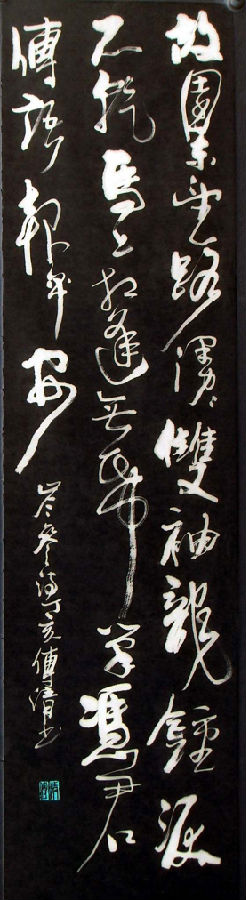 故園東望路漫漫雙袖龍鍾淚
不乾馬上相逢無紙筆憑君
傳語報平安
岑參詩丁亥傅清月書